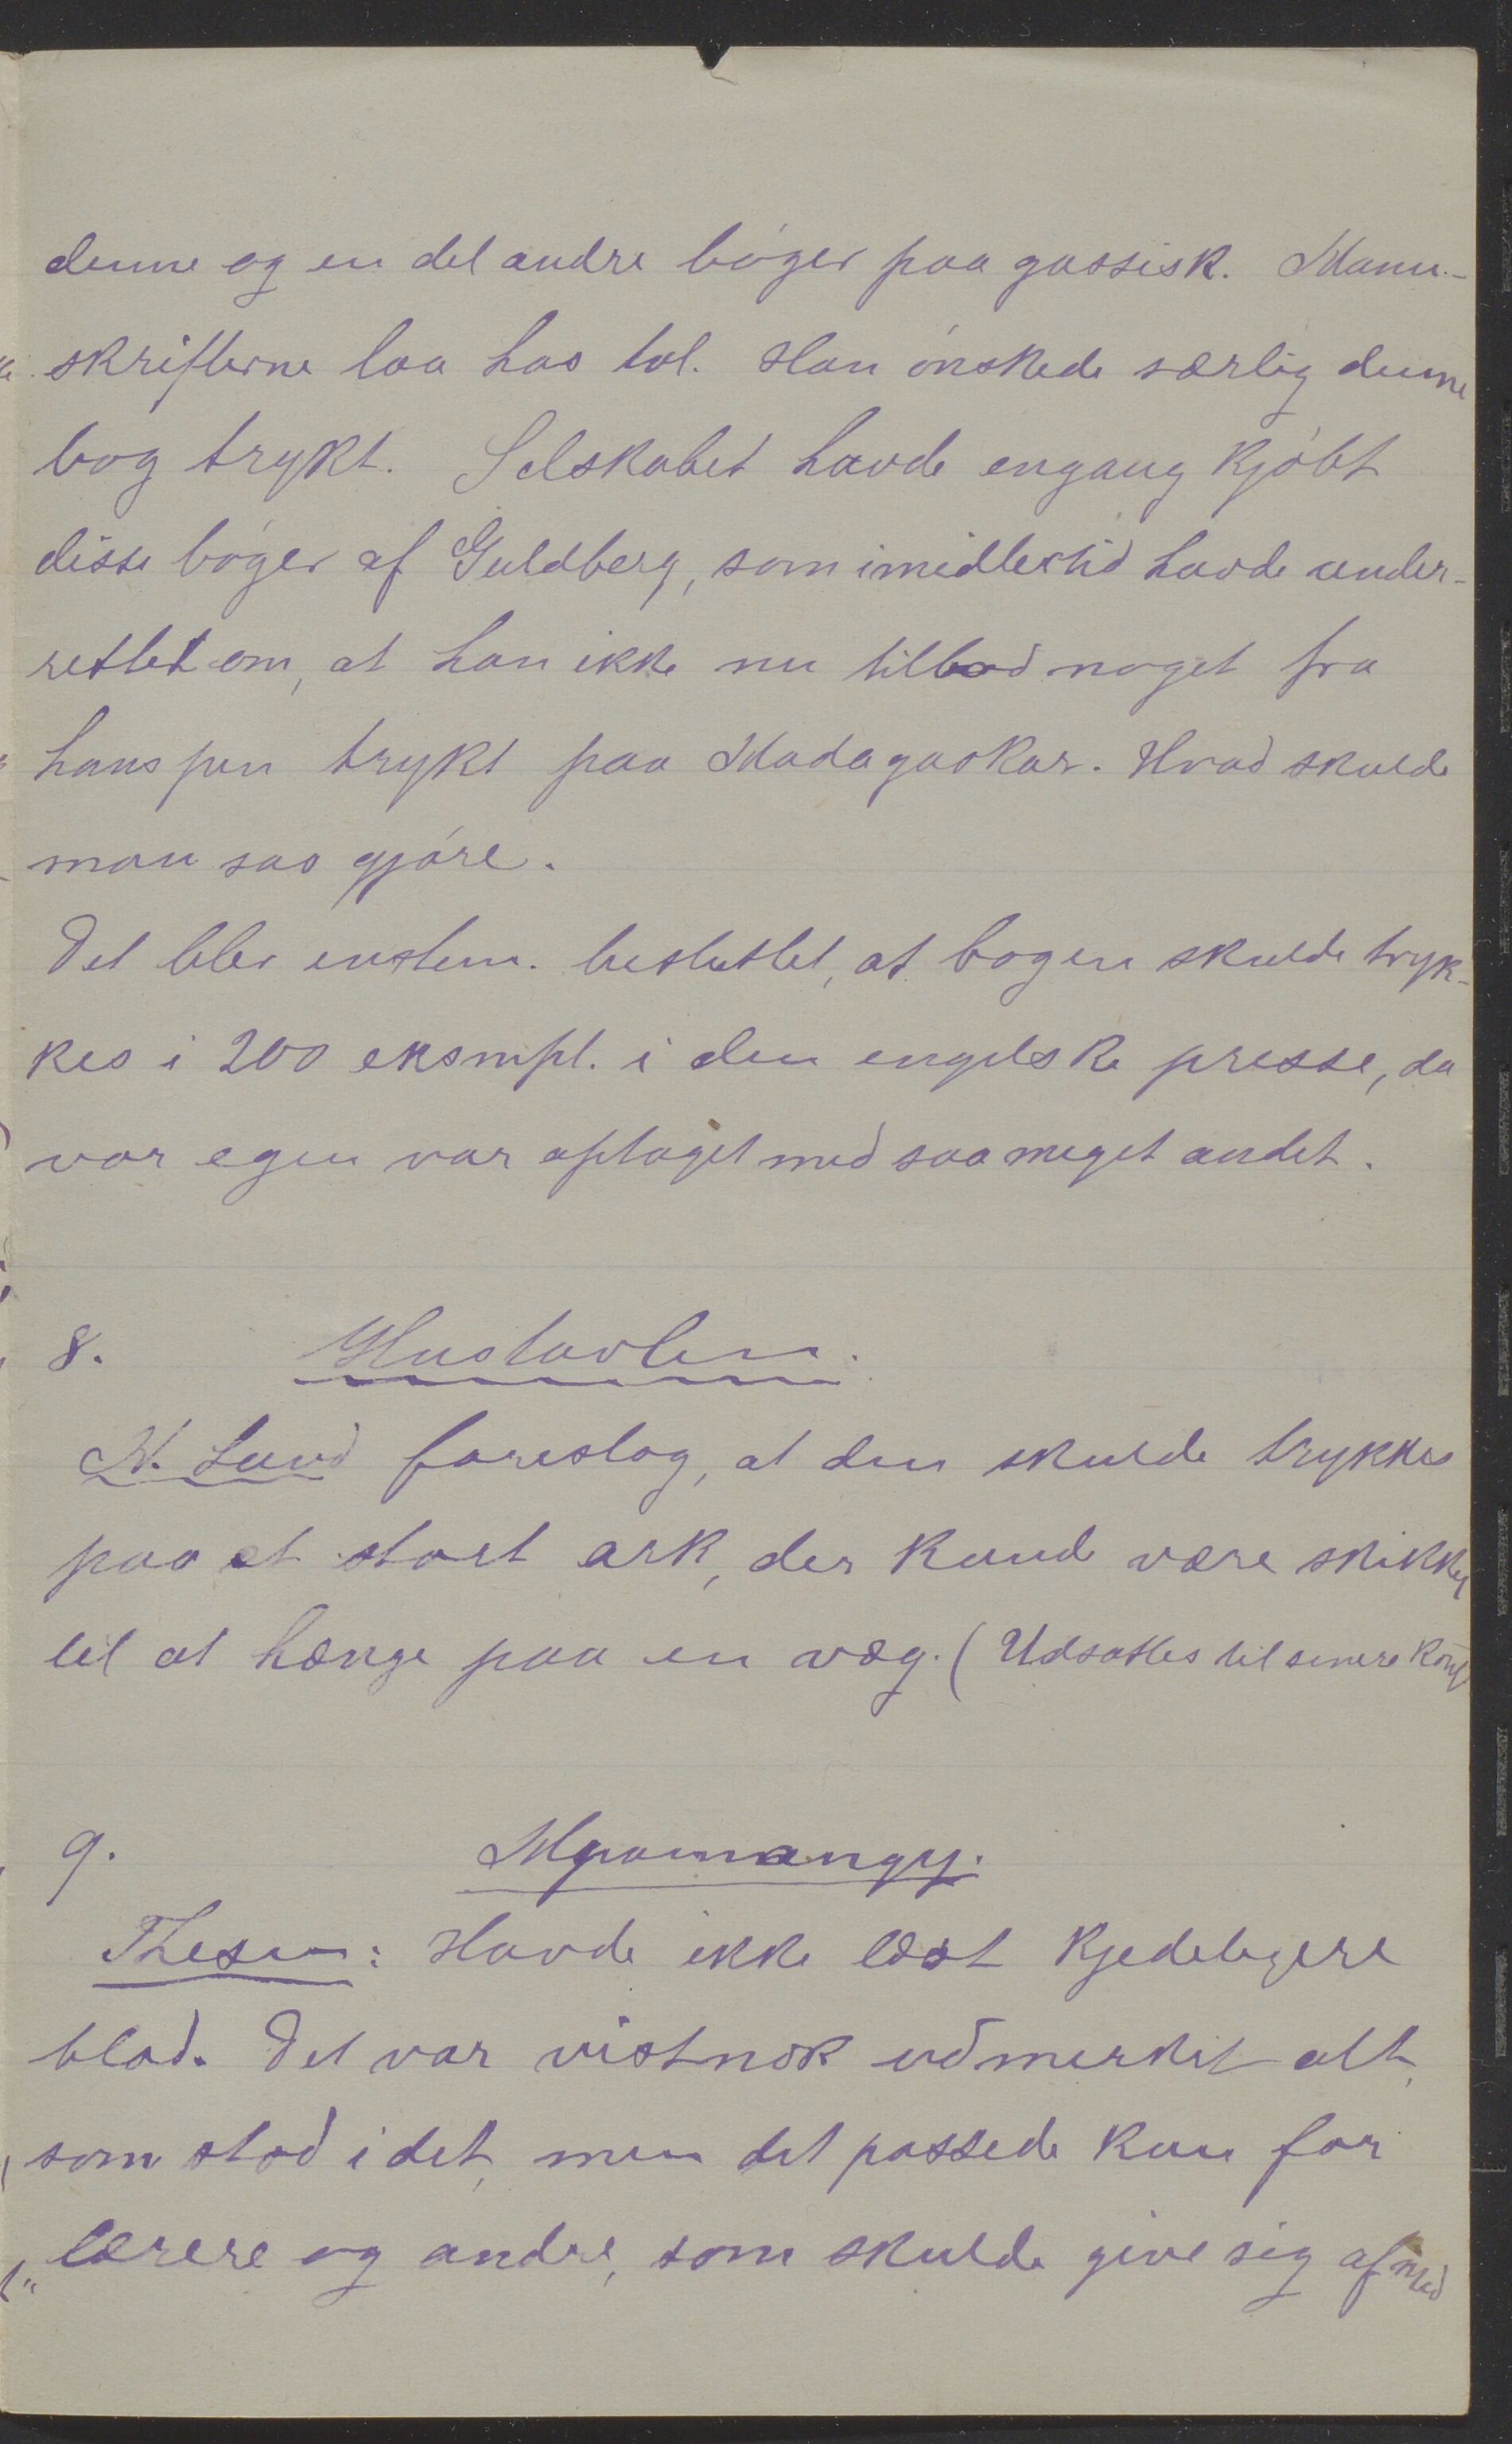 denne og en del andre bøger paa gassisk. Manu-
skrifterne laa hos tal. Han ønskede særlig denne
bog trykt. Selskabet havde engang kjøbt
disse bøger af Guldberg, som imidlertid havde under-
rettet om, at han ikke nu tilbød noget fra
hans pen trykt paa Madagaskar. Hvad skulde
man saa gjøre.
Det blev enstem. besluttet, at bogen skulde tryk-
kes i 200 eksmpl. i den engelske presse, da
vor egen var optaget med saa meget andet.
8. Hustavlen.
N. Lund foreslog, at den skulde trykkes
paa et stort ark, der kunde være skikket
til at hænge paa en væg. (Udsattes til senere konf
9. Mpamangy.
Thesen: Havde ikke læst kjedeligere
blad. Det var vistnok udmerket alt,
som stod i det, men det passede kun for
lærere og andre, som skulde give sig af med